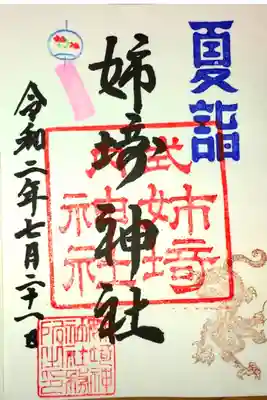 夏詣
式姉埼
内神社
姉埼神社
令和二年七月二十一日
姉埼神
社社務
所之印